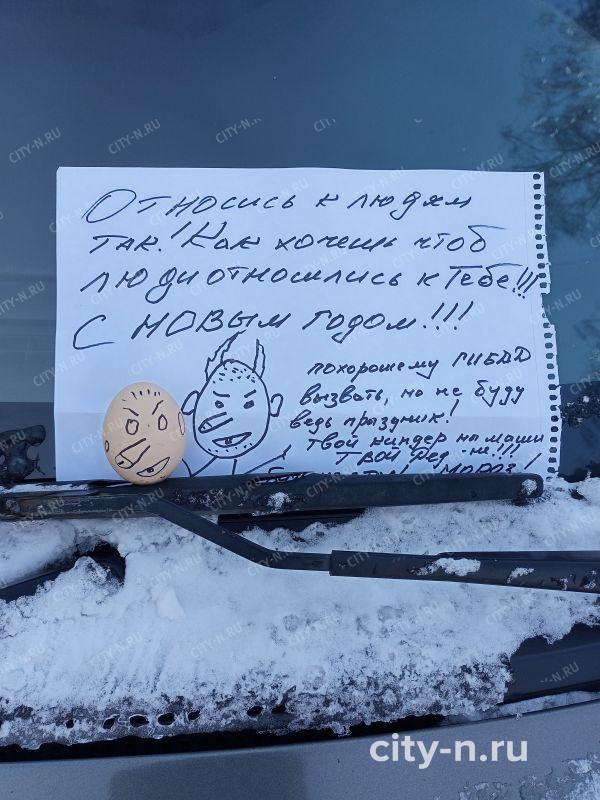 Относись к людям
так! Как хочешь чтоб
люди относились к Тебе!!!
С новым годом!!!
похорошему ГИБДД
вызвать, но не буду
ведь праздник!
Твой киндер на маши
-не!!!
Твой Дед
Мороз!
city-n.ru